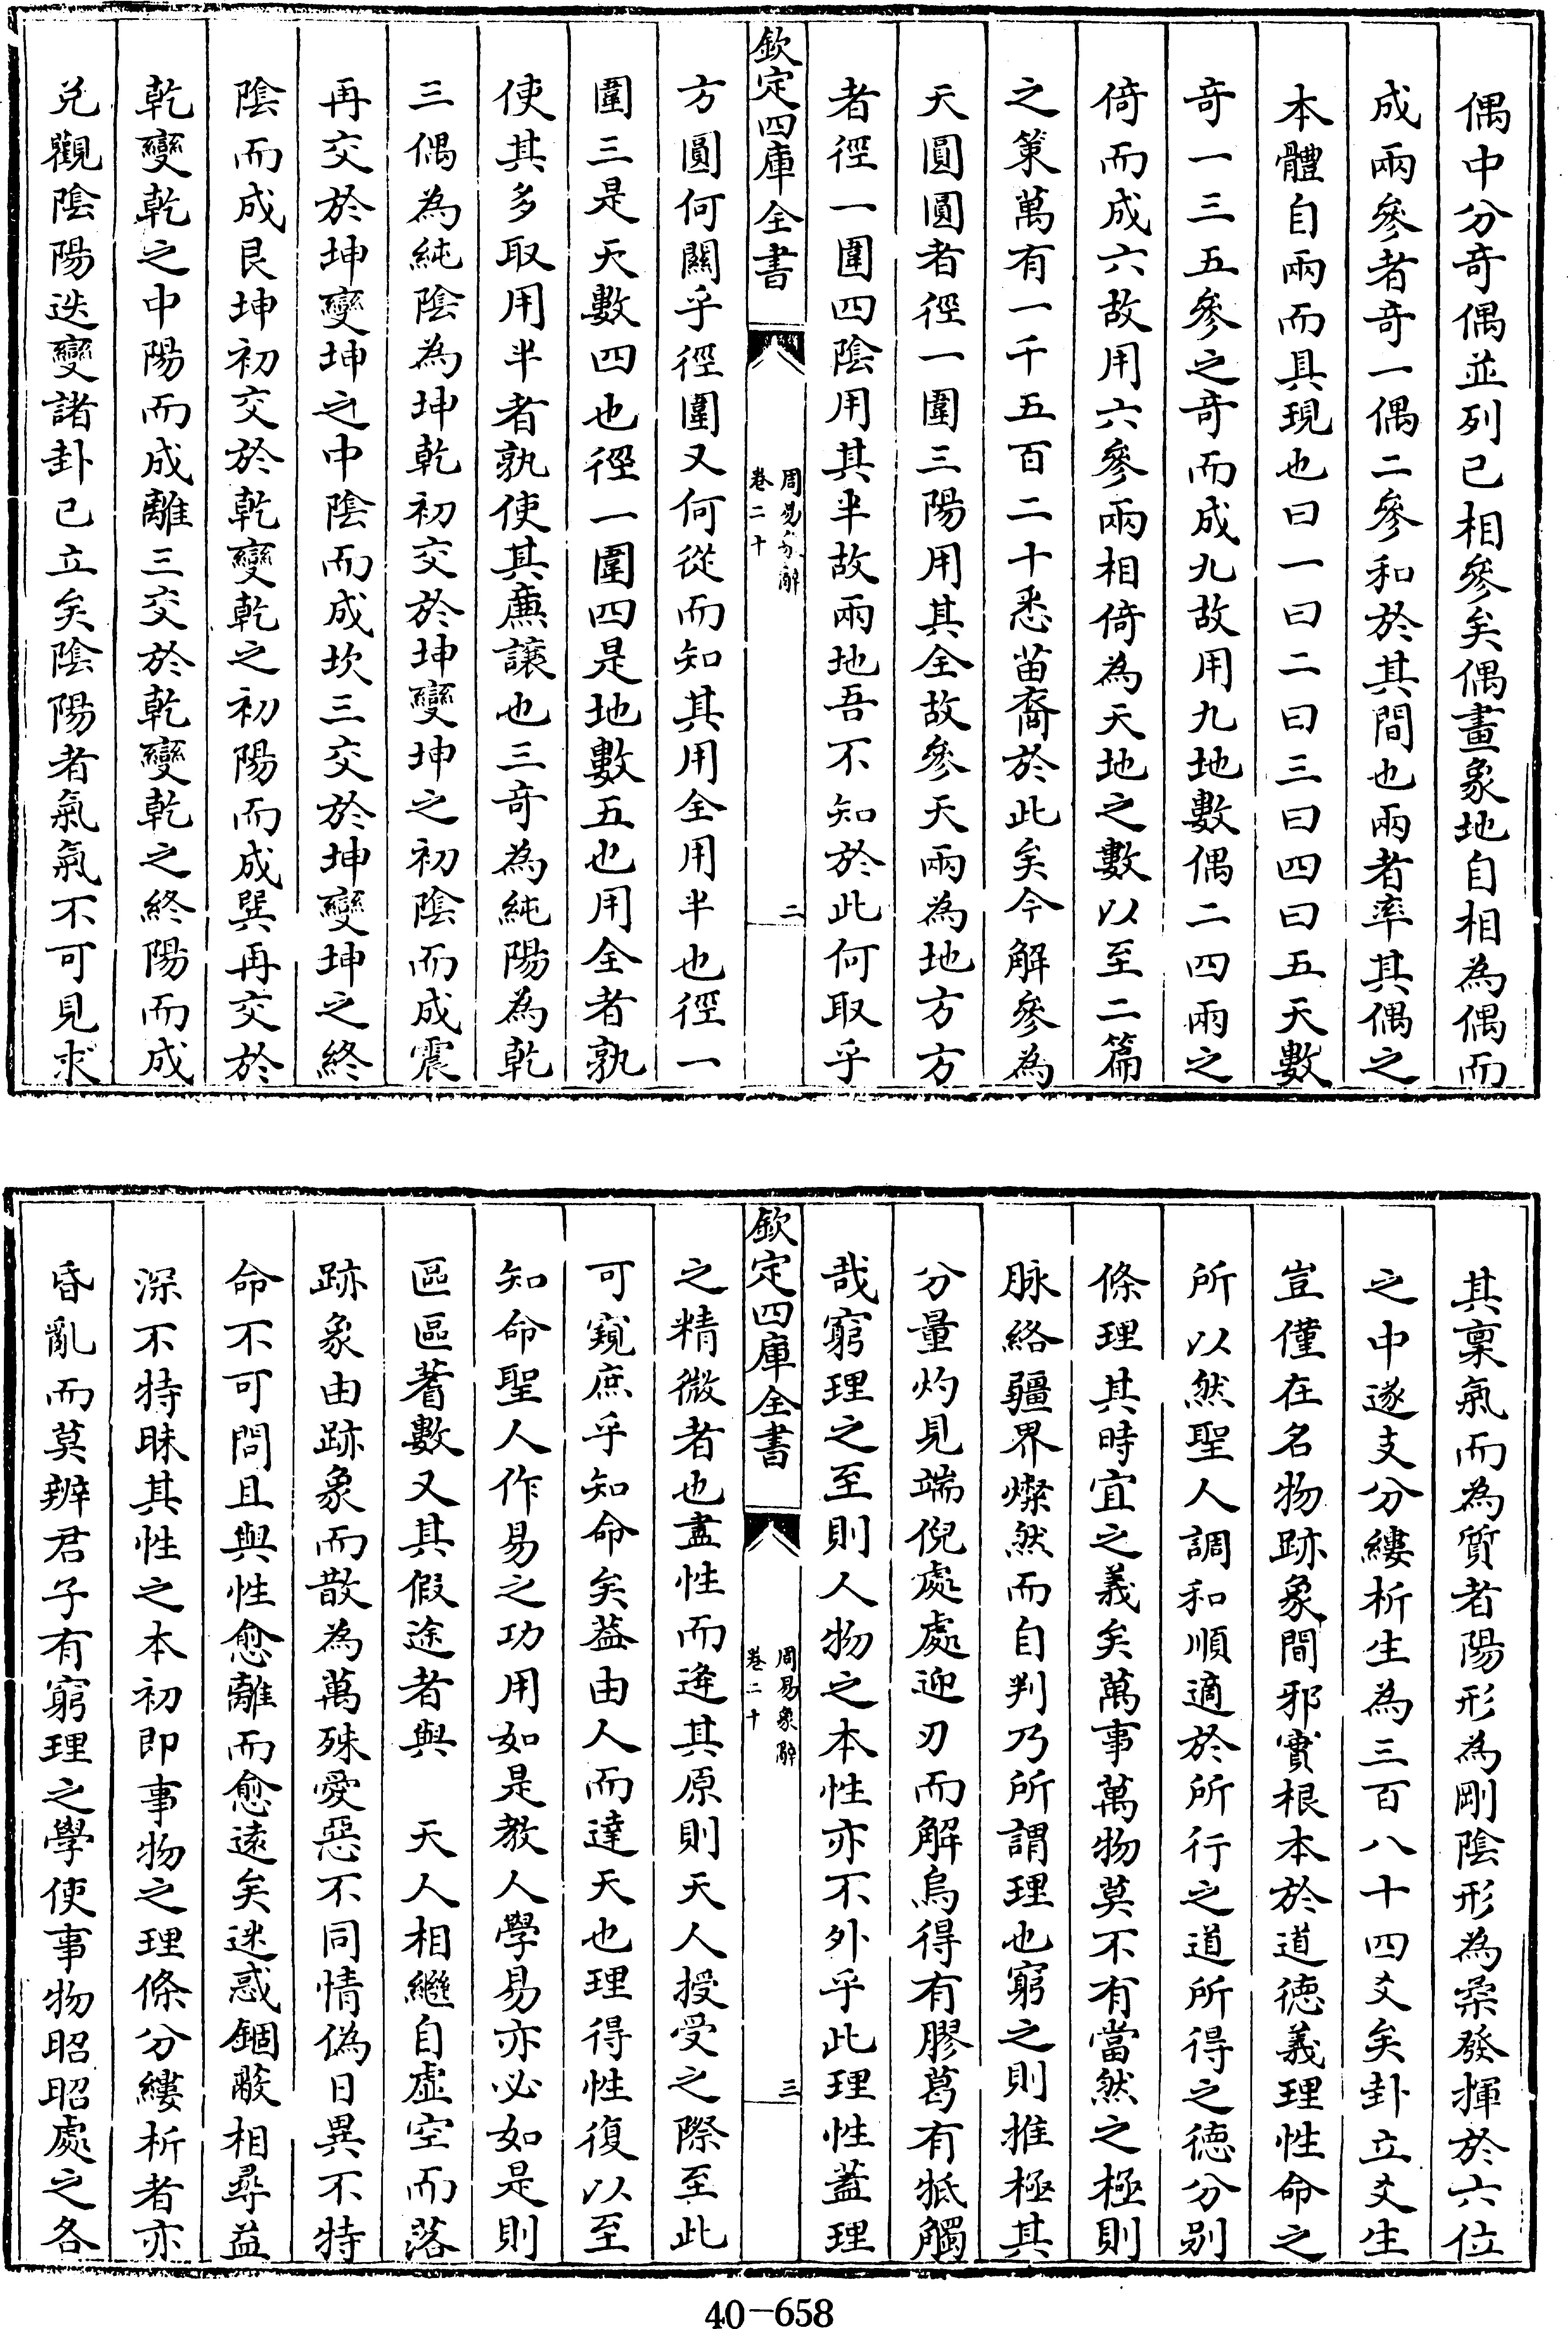 偶中分奇偶並列已相參矣偶畫象地自相為偶而
成兩參者奇一偶二參和於其間也兩者率其偶之
本體自兩而具現也曰一曰二曰三曰四曰五天數
奇一三五參之奇而成九故用九地數偶二四兩之
倚而成六故用六參兩相倚為天地之數以至二篇
之策萬有一千五百二十悉苗裔於此矣今解參為
天圓圓者徑一圍三陽用其全故參天兩為地方方
者徑一圍四陰用其半故兩地吾不知於此何取乎
欽定四庫全書
周易象辭
卷二十
二
方圓何關乎徑圍又何從而知其用全用半也徑一
圍三是天數四也徑一圍四是地數五也用全者孰
使其多取用半者孰使其廉讓也三奇為純陽為乾
三偶為純陰為坤乾初交於坤變坤之初陰而成震
再交於坤變坤之中陰而成坎三交於坤變坤之終
陰而成艮坤初交於乾變乾之初陽而成巽再交於
乾變乾之中陽而成離三交於乾變乾之終陽而成
兌觀陰陽迭變諸卦已立矣陰陽者氣氣不可見求
其稟氣而為質者陽形為剛陰形為柔發揮於六位
之中遂支分縷析生為三百八十四爻矣卦立爻生
豈僅在名物跡象間邪實根本於道德義理性命之
所以然聖人調和順適於所行之道所得之德分別
條理其時宜之義矣萬事萬物莫不有當然之極則
脉絡疆界燦然而自判乃所謂理也窮之則推極其
分量灼見端倪處處迎刃而解烏得有膠葛有牴觸
哉窮理之至則人物之本性亦不外乎此理性蓋理
欽定四庫全書
周易象辭
卷二十
三
之精微者也盡性而逹其原則天人授受之際至此
可窺庶乎知命矣葢由人而達天也理得性復以至
知命聖人作易之功用如是教人學易亦必如是則
區區蓍數又其假途者與　天人相繼自虛空而落
跡象由跡象而散為萬殊愛惡不同情偽日異不特
命不可問且與性愈離而愈遠矣迷惑錮蔽相尋益
深不特昧其性之本初即事物之理條分縷析者亦
昏亂而莫辨君子有窮理之學使事物昭昭處之各
40-658